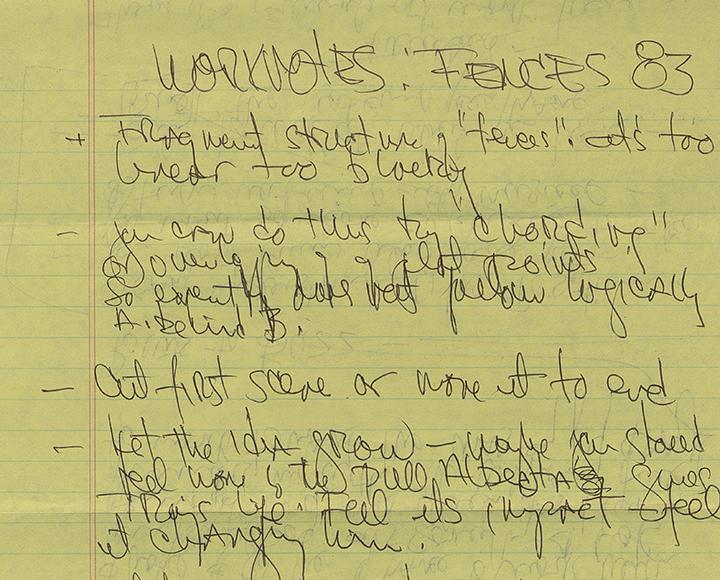 WORKNOTES: FENCES 83
+ Fragment structure of "fences". it's too
linear too blocky
- you can do this by "chording"
or overlaying of plot points
so exactly does not follow logically
A. behind B.
- Cut first scene or move it to end
- Let the idea grow - maybe you should
feel more of the pull Alberta gives
Troy's life. Feel its impact - feel
it changing him.